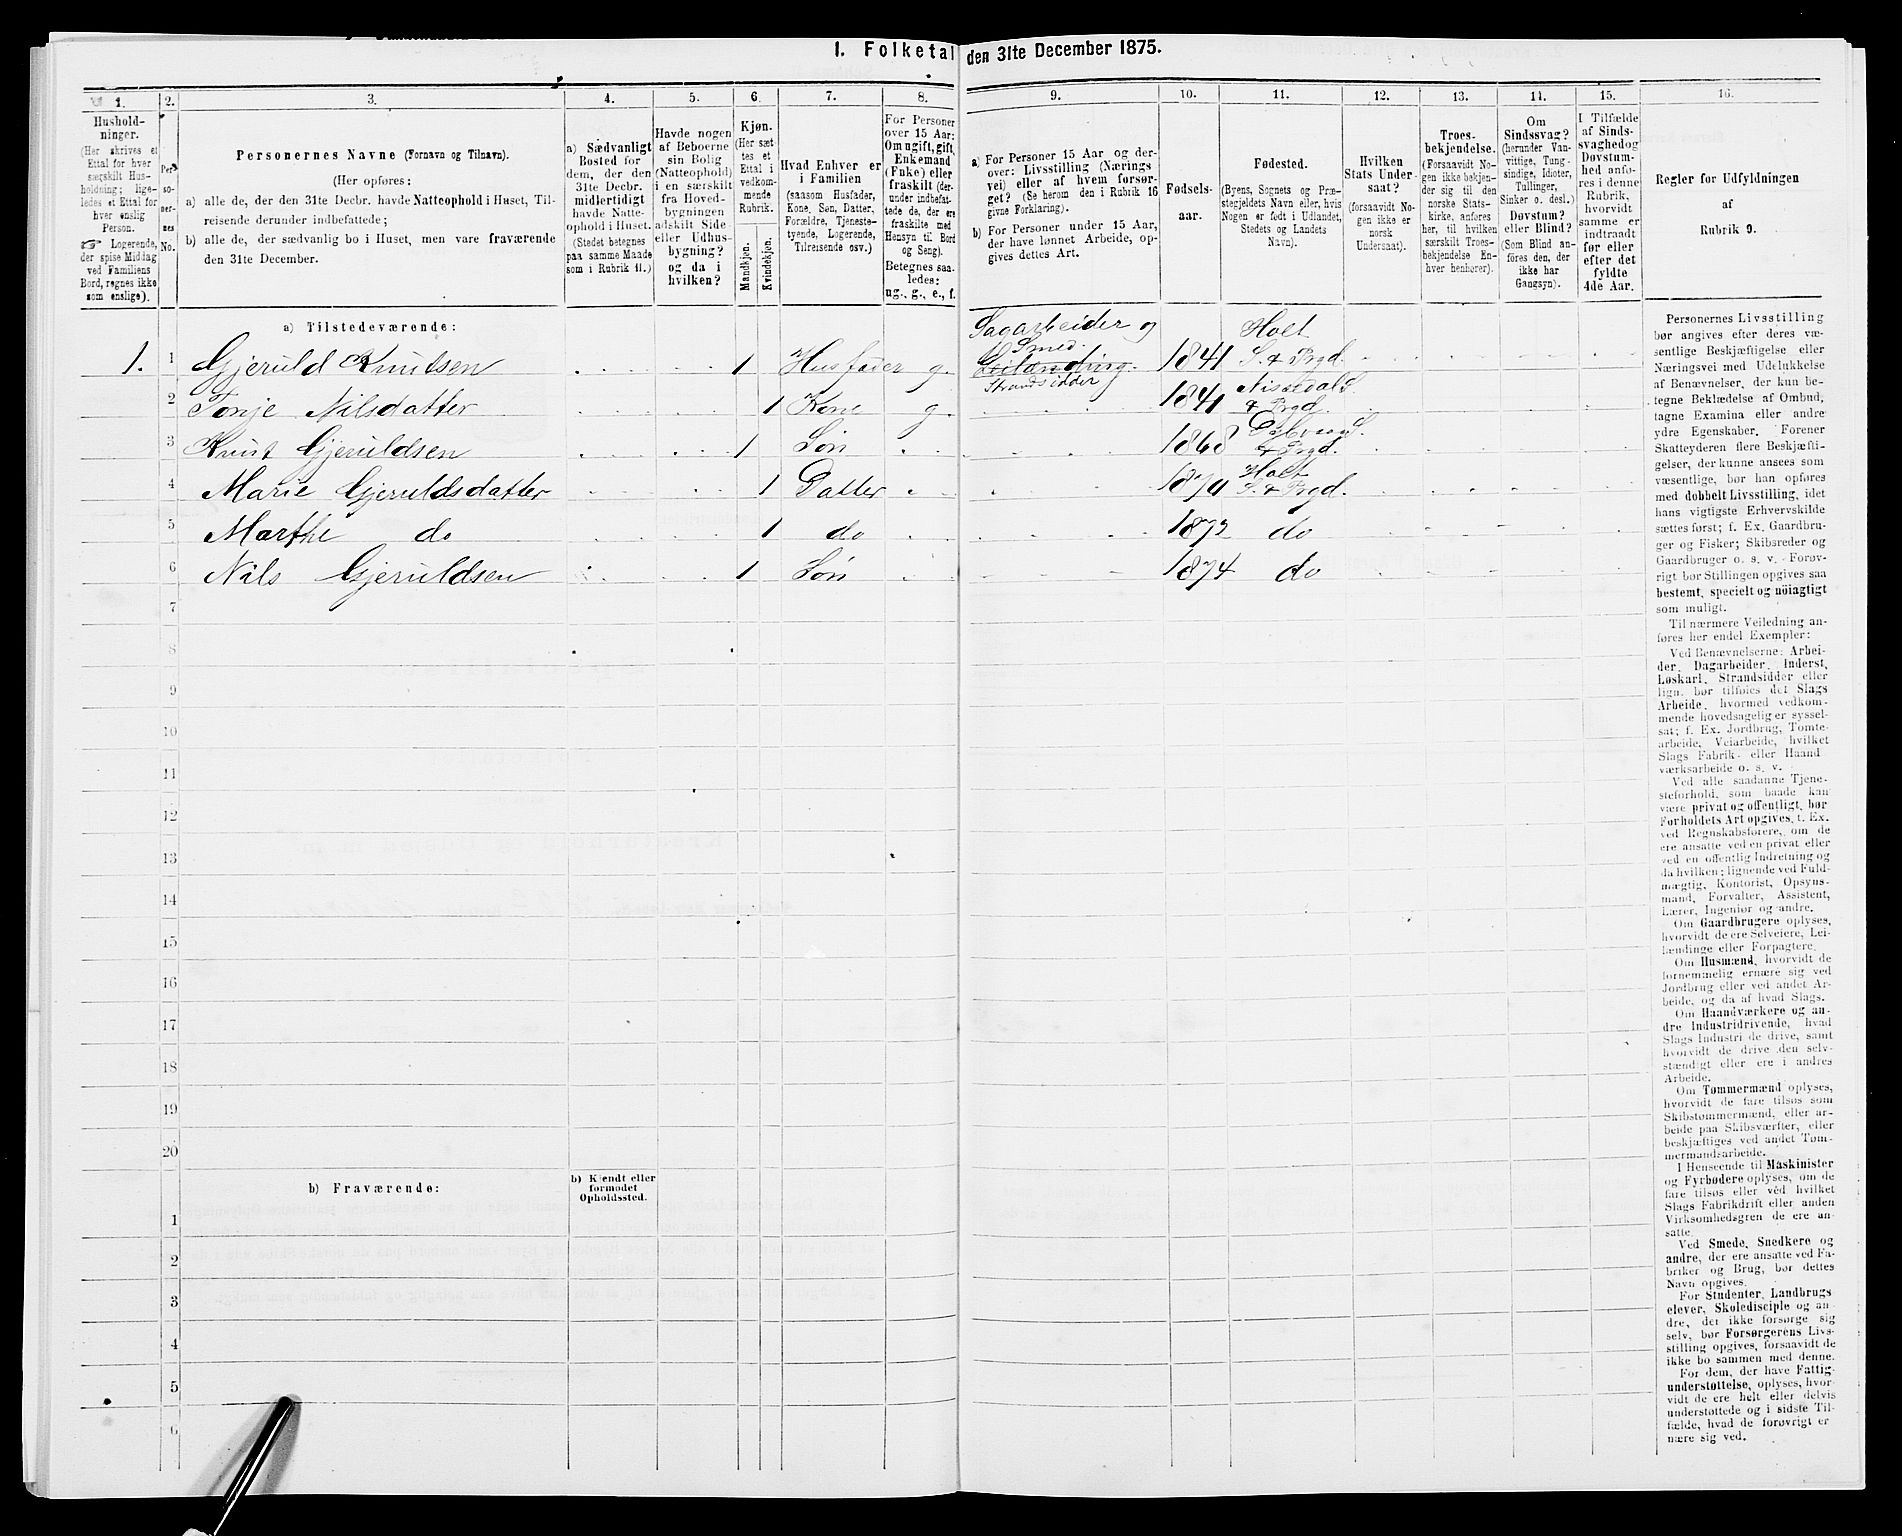 1. Folketal den 31te December 1875.
1. 2. 3. 4. 5. 6. 7. 8. 9. 10. 11. 12. 13. 14. 15. 16.
Hushold-
ninger.
(Her skrives et
Ettal for hver
særskilt Hus-
holdning; lige-
ledes et Ettal for
hver enslig
Person.
☞ Logerende,
der spise Middag
ved Familiens
Bord, regnes ikke
som enslige).
Per-
so-
ner-
nes
No.
Personernes Navne (Fornavn og Tilnavn).
(Her opføres:
a) alle de, der den 31te Decbr. havde Natteophold i Huset, Til-
reisende derunder indbefattede;
b) alle de, der sædvanlig bo i Huset, men vare fraværende
den 31te December.
a) Sædvanligt
Bosted for
dem, der den
31te Decbr.
midlertidigt
havde Natte-
ophold i Huset.
(Stedet betegnes
paa samme Maade
som i Rubrik 11.)
Havde nogen
af Beboerne
sin Bolig
(Natteophold)
i en særskilt
fra Hoved-
bygningen
adskilt Side-
eller Udhus-
bygning?
og da i
hvilken?
Kjøn.
(Her sæt-
tes et
Ettal i
vedkom-
mende
Rubrik.
Mandkjøn.
Kvindekjøn.
Hvad Enhver er
i Familien
(saasom Husfader,
Kone, Søn, Datter,
Forældre, Tjeneste-
tyende, Logerende,
Tilreisende osv.)
For Personer
over 15 Aar:
Om ugift, gift,
Enkemand
(Enke) eller
fraskilt (der-
under indbefat-
tede de, der ere
fraskilte med
Hensyn til Bord
og Seng).
Betegnes saa-
ledes:
ug., g., e., f.
a) For Personer 15 Aar og der-
over: Livsstilling (Nærings
vei) eller af hvem forsør-
get? (Se herom den i Rubrik 16
givne Forklaring).
b) For Personer under 15 Aar,
der have lønnet Arbeide, op-
gives dettes Art.
Fødsels-
aar.
Fødested.
(Byens, Sognets og Præ-
stegjeldets Navn eller, hvis
Nogen er født i Udlandet,
Stedets og Landets
Navn).
Hvilken
Stats Under
saat?
(forsaavidt No-
gen ikke er
norsk
Undersaat).
Troes-
bekjendelse.
(Forsaavidt No-
gen ikke bekjen-
der sig til den
norske Stats-
kirke, anføres
her, til hvilken
særskilt Troes-
bekjendelse En-
hver henhører).
Om
Sindssvag?
(herunder Van-
vittige, Tung-
sindige, Idioter,
Tullinger,
Sinker o. desl.)
Døvstum?
eller Blind?
(Som Blind an-
føres den, der
ikke har
Gangsyn).
I Tilfælde
af Sinds-
svaghed og
Døvstum-
hed anfø-
res i denne
Rubrik,
hvorvidt
samme er
indtraadt
før eller
efter det
fyldte
4de Aar.
Regler for Udfyldningen
af
Rubrik 9.
a) Tilstedeværende:
Sagarbeider og
Smed.
1. 1 Gjeruld Knutsen 1 Husfader g. Leilænding. 1841 Holt S. & Prgd.
Strandsidder
2 Tonje Nilsdatter 1 Kone g 1841 Nissedals S. & Prgd.
3 Knut Gjeruldsen 1 Søn 1868 S. & Prgd.
4 Marie Gjeruldsdatter 1 Datter 1870 Holt S. & Prgd.
5 Marthe do 1 do 1872 do
6 Nils Gjeruldsen 1 Søn 1874 do
7
8
9
10
11
12
13
14
15
16
17
18
19
20
b) Fraværende:
b) Kjendt eller
formodet
Opholdssted.
1
2
3
4
5
6
Personernes Livsstilling
bør angives efter deres væ-
sentlige Beskjæftigelse eller
Næringsvei med Udelukkelse
af Benævnelser, der kun be-
tegne Beklædelse af Ombud,
tagne Examina eller andre
ydre Egenskaber. Forener
Skatteyderen flere Beskjæfti-
gelser, der kunne ansees som
væsentlige, bør han opføres
med dobbelt Livsstilling, idet
hans vigtigste Erhvervskilde
sættes først; f. Ex. Gaardbru-
ger og Fisker; Skibsreder og
Gaardbruger o. s. v. Forøv-
rigt bør Stillingen opgives saa
bestemt, specielt og nöiagtigt
som muligt.
Til nærmere Veiledning an-
føres her endel Exempler:
Ved Benævnelserne: Arbei-
der, Dagarbeider, Inderst,
Løskarl, Strandsidder eller
lign. bør tilføies det Slags
Arbeide, hvormed vedkom-
mende hovedsagelig er syssel-
sat; f. Ex. Jordbrug, Tomte-
arbeide, Veiarbeide, hvilket
Slags Fabrik- eller Haand
værksarbeide o. s. v.
Ved alle saadanne Tjene-
steforhold, som baade kan
være privat og offentligt, bør
Forholdets Art opgives, t. Ex.
ved Regnskabsførere, om de
ere ansatte ved en privat eller
ved en offentlig Indretning og
da hvilken; lignende ved Fuld-
mægtig, Kontorist, Opsyns-
mand, Forvalter, Assistent,
Lærer, Ingeniør og andre.
Om Gaardbrugere oplyses,
hvorvidt de ere Selveiere, Lei-
lændinge eller Forpagtere.
Om Husmænd, hvorvidt de
fornemmelig ernære sig ved
Jordbrug eller ved andet Ar-
beide, og da af hvad Slags.
Om Haandværkere og an-
dre Industridrivende, hvad
Slags Industri de drive, samt
hvorvidt de drive den selv-
stændigt eller ere i andres
Arbeide.
Om Tømmermænd oplyses,
hvorvidt de fare tilsøs som
Skibstømmermænd, eller ar-
beide paa Skibsværfter, eller
beskjæftiges ved andet Tøm-
mermandsarbeide.
I Henseende til Maskinister
og Fyrbødere oplyses, om de
fare tilsøs eller ved hvilket
Slags Fabrikdrift eller anden
Virksomhedsgren de ere an-
satte.
Ved Smede, Snedkere og
andre, der ere ansatte ved Fa-
briker og Brug, bør dettes
Navn opgives.
For Studenter, Landbrugs
elever, Skoledisciple og an-
dre, det ikke forsørge sig
selv, bør Forsørgerens Livs-
stilling opgives, forsaavidt de
ikke bo sammen med denne.
For dem, der have Fattig-
understøttelse, oplyses, hvor-
vidt de ere helt eller delvis
understøttede og i sidste Til-
fælde, hvad de forøvrigt er
nære sig ved.